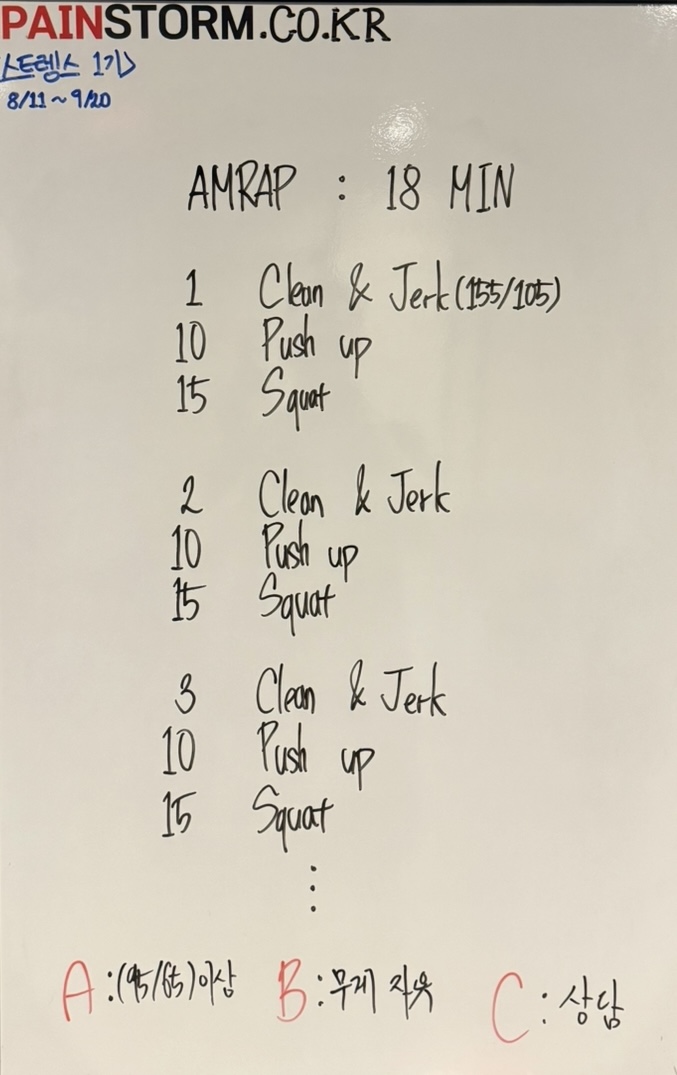 PAINSTORM.CO.KR
스트렝스 1기
8/11 ~ 9/20
AMRAP : 18 MIN
1 Clean & Jerk (155/105)
10 Push up
15 Squat
2 Clean & Jerk
10 Push up
15 Squat
3 Clean & Jerk
10 Push up
15 Squat
⋮
A : (95/65) 이상 B : 무게 자유 C : 상담